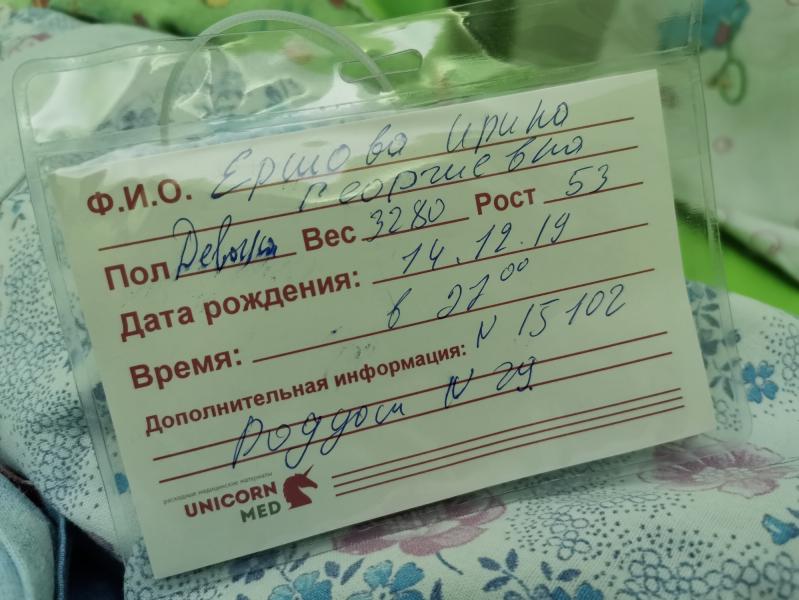 Ф.И.О. Ершова Ирина
Георгиевна
Пол Девочка Вес 3280 Рост 53
Дата рождения: 14.12.19
Время: в 22⁰⁰
Дополнительная информация: N 15102
Роддом N 29
расходные медицинские материалы
UNICORN
MED